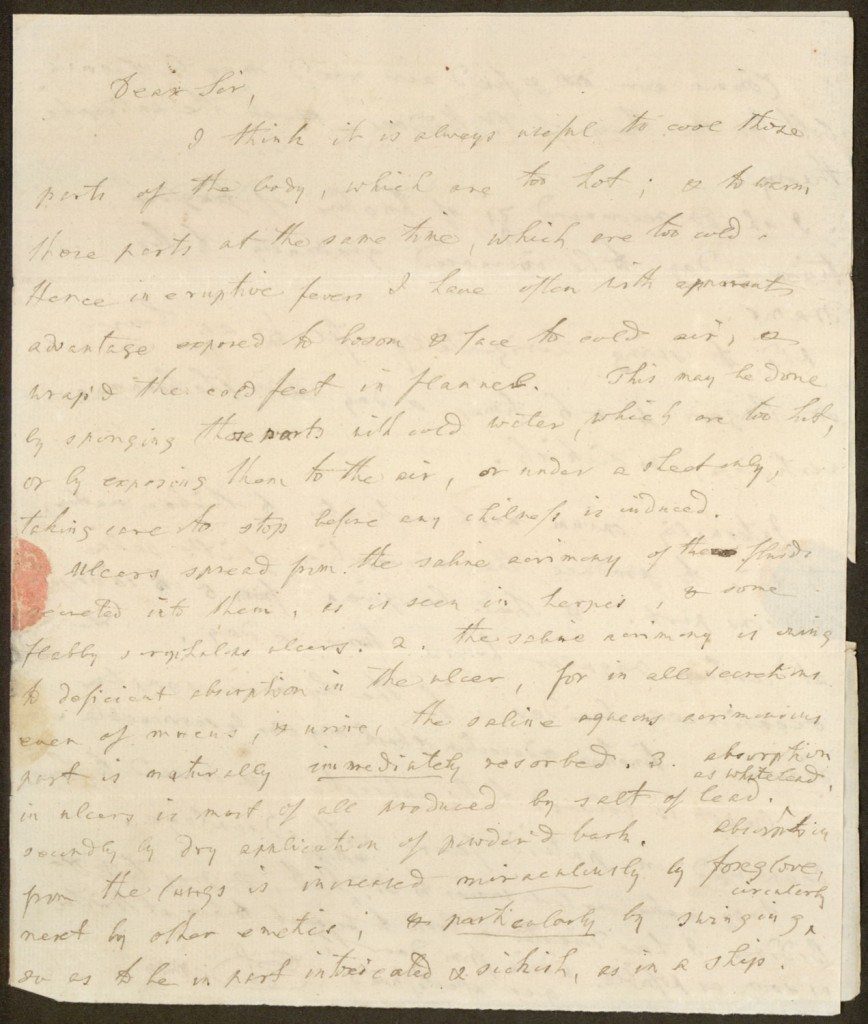 Dear Sir,
I think it is always useful to cool those
parts of the body, which are too hot; & to warm
those parts at the same time, which are too cold.
Hence in eruptive fevers I have often with apparent
advantage exposed to bosom & face to cold air, &
wrap'd the cold feet in flannel. This may be done
by sponging those parts with cold water, which are too hot,
or by exposing them to the air, or under a sheet only,
taking care to stop before any chilness is induced.
Ulcers spread from the saline acrimony of the fluids
secreted into them, as is seen in herpes, & some
flabby ulcers. 2. the saline acrimony is owing
to deficient absorption in the ulcer, for in all secretions
even of mucus, & urine, the saline aqueous acrimonious
part is naturally immediately resorbed. 3. absorption
in ulcers is most of all produced by salt of lead. ^ as white lead,
secondly by dry application of powder'd bark. absorption
from the lungs is increased miraculously by foxglove,
next by other emetics; & particularly by swinging ^ circularly
so as to be in part intoxicated & sickish, as in a ship.